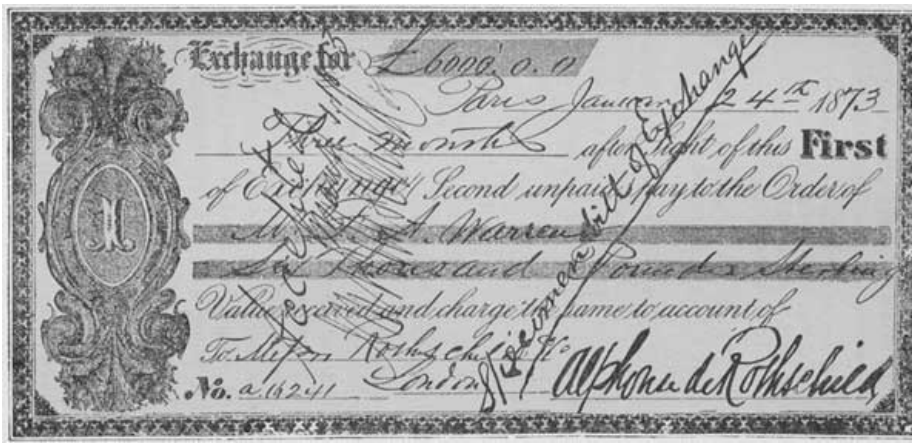 Exchange for £6000.0.0
Paris January 24th 1873
Three months after sight of this First
of Exchange Second unpaid pay to the Order of
Mr F. A. Warren
Six Thousand Pounds Sterling
Value received and charge the same to account of
To Messrs Rothschild
London
No.
Alphonse de Rothschild
Specimen bill of Exchange
1